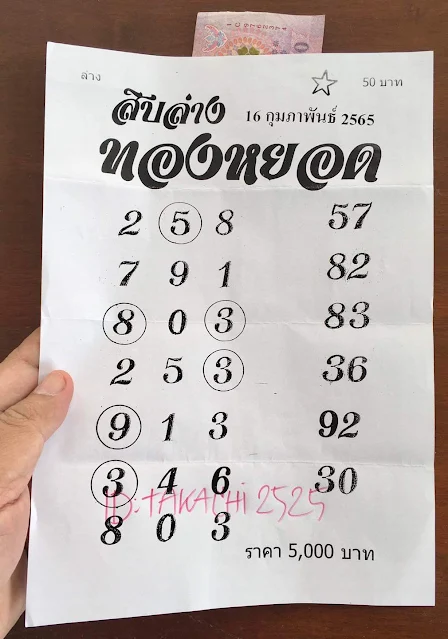 ล่าง 50 บาท
สิบล่าง 16 กุมภาพันธ์ 2565
ทองหยอด
2 5 8 57
7 9 1 82
8 0 3 83
2 5 3 36
9 1 3 92
3 4 6 30
ID: TAKACHI 2525
8 0 3
ราคา 5,000 บาท